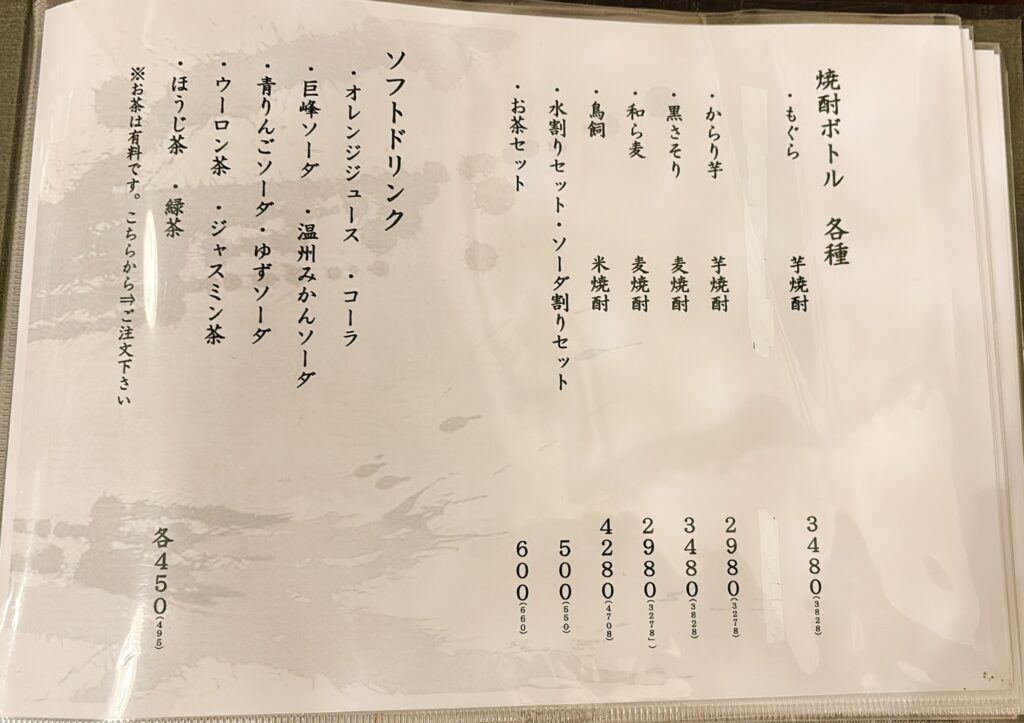 焼酎ボトル 各種
・もぐら 芋焼酎 3480(3828)
・からり芋 芋焼酎 2980(3278)
・黒さそり 麦焼酎 3480(3828)
・和ら麦 麦焼酎 2980(3278」)
・鳥飼 米焼酎 4280(4708)
・水割りセット・ソーダ割りセット 500(550)
・お茶セット 600(660)
ソフトドリンク
・オレンジジュース ・コーラ
・巨峰ソーダ ・温州みかんソーダ
・青りんごソーダ・ゆずソーダ
・ウーロン茶 ・ジャスミン茶
・ほうじ茶 ・緑茶 各450(495)
※お茶は有料です。こちらから⇒ご注文下さい